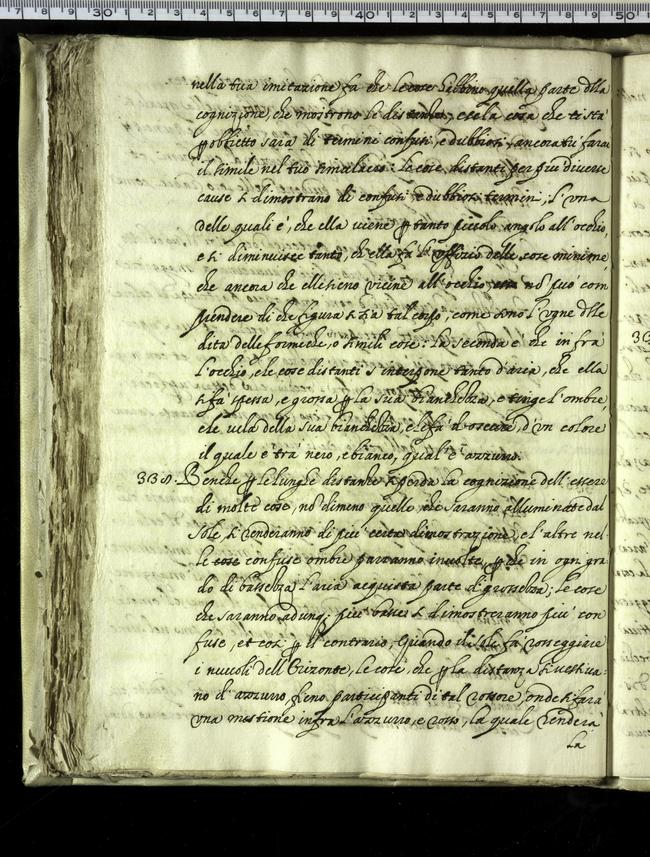 nella tua imitazione fa che le cose habbino quella parte della
cognizione, che mostrono le distanze, e se la cosa che ti sta
ꝑ obbietto sara di termini confusi, e dubbiosi, ancora tu farai
il simile nel tuo simulacro. le cose distanti per piu diverse
cause si dimostrano di confusi, e dubbiosi termini, l'una
delle quali è, che ella viene ꝑ tanto piccolo angolo all'occhio,
e si diminuisce tanto, che ella fa l'offizio delle cose minime
che ancora che elle sieno vicine all'occhio no' può com
prendere di che figura si sia tal corpo, come sono l'ugne delle
dita delle formiche, o simili cose: la seconda è che infra
l'occhio, e le cose distanti s'interpone tanto d'aria, che ella
si fa spessa, e grossa, ꝑ la sua bianchezza, e tinge l'ombre
che vela della sua bianchezza, e le fa d'oscure, d'un colore
il quale è tra nero, e bianco, qual'è azzurro.
338. Benche ꝑ le lunghe distanze si perda la cognizione dell'essere
di molte cose, no' dimeno quelle, che saranno alluminate dal
sole, si renderanno di più certa dimostrazione, e l'altre nel
le confuse ombre parranno involte, ꝑ che in ogni gra
do di bassezza l'aria acquista parte di grossezza; le cose
che saranno adunq; piu basse si dimostreranno più con
fuse, et cosi ꝑ il contrario; Quando il sole fa rosseggiare
i nuvoli dell'Orizonte, le cose, che ꝑ la distanza si vestiva-
no d'azzurro, fieno participanti di tal rossore, onde si farà
una mistione infra l'azzurro, e rosso, la quale renderà
la